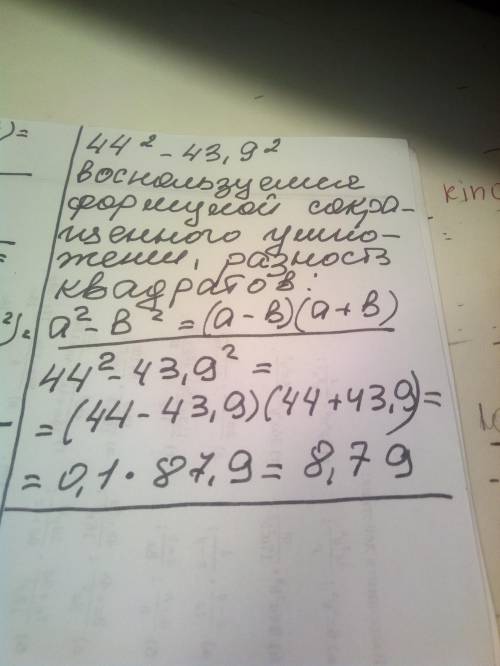 44² - 43,9²
воспользуемся
формулой сокра-
щенного умно-
жени, разность
квадратов:
a² - b² = (a - b)(a + b)
44² - 43,9² =
= (44 - 43,9)(44 + 43,9) =
= 0,1 · 87,9 = 8,79
)=
=
²).
kin
=